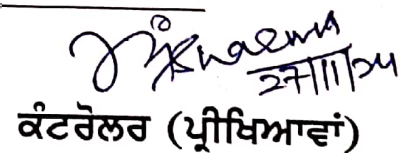 27/11/24
ਕੰਟਰੋਲਰ (ਪ੍ਰੀਖਿਆਵਾਂ)